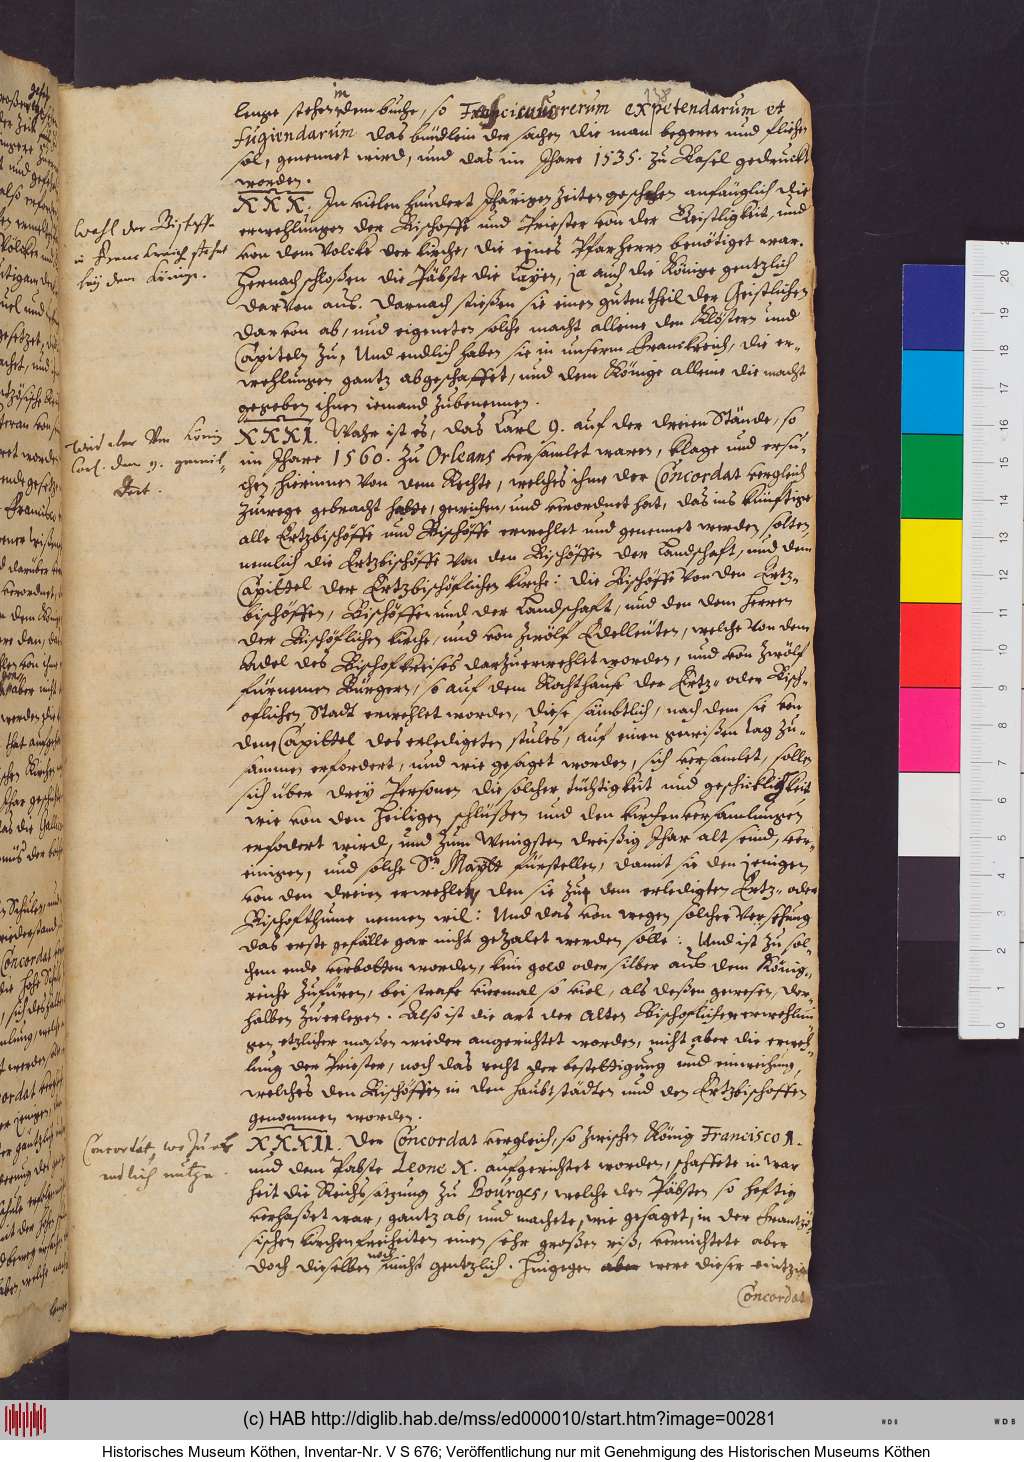 lenge stehen im dem buche, so Fasciculus rerum expetendarum et
fugiendarum das bündlein der sachen die man begeren und fliehen
sol, genennet wird, und das im Jhare 1535. zu Basel gedruckt
worden.
XXX. In vielen hundert Jhärigen zeiten geschehen anfänglich die
erwehlungen der Bischoffe und Priester von der Geistligkeit, und
von dem Volcke der kirche, die eines Pfarherren benötiget war.
Hernach schloßen die Päbste die Layen, ja auch die Könige gentzlich
darvon aus. Darnach stießen sie einen guten theil der Geistlichen
darvon ab, und eigneten solche macht alleine den Klöstern und
Capiteln zu, Und endlich haben sie in unserm Franckreich, die er-
wehlungen gantz abgeschaffet, und dem Könige alleine die macht
gegeben ihnen iemand zubenennen.
XXXI. Wahr ist es, das Carl 9. auf der dreien Stände, so
im Jhare 1560. zu Orleans versamlet waren, klage und ersu-
chen hierinnen von dem Rechte, welches ihme der Concordat vergleich
zuwege gebracht hatte, gewichen, und verordnet hat, das ins künftige
alle Ertzbischöffe und Bischöffe erwehlet und genennet werden solten,
nemlich die Ertzbischöffe von den Bischöffen der Landschaft, und dem
Capittel der Ertzbischöflichen kirche: die Bischöffe von den Ertz-
bischöffen, Bischöffen und der Landschaft, und den dem Herren
der Bischöflichen kirche, und von zwölf Edelleuten, welche von dem
Adel des Bischofkreises darzu erwehlet worden, und von zwölf
fürnemen Bürgern, so auf dem Rahthause der Ertz- oder Bisch-
oflichen Stadt erwehlet worden, diese sämbtlich, nach dem sie von
dem Capittel des erledigeten stules, auf einen gewißen tag zu-
sammen erfordert, und wie gesaget worden, sich versamlet, sollen
sich über drey Personen die solcher tüchtigkeit und geschickligkeit
wie von den heiligen schlüßen und den kirchenversamlungen
erfodert wird, und zum wenigsten dreißig Jhar alt seind, ver-
einigen, und solche Sr. Maytt fürstellen, damit sie den jenigen
von den dreien erwehleten, den sie zu dem erledigten Ertz- oder
Bischofthume nennen wil: Und das von wegen solcher Versehung
das erste gefälle gar nicht gezalet werden solle: Und ist zu sol-
chem ende verbotten worden, kein gold oder silber aus dem König-
reiche zufüren, bei strafe viermal so viel, als deßen gewesen, der-
halben zuerlegen. Also ist die art der alten Bischoflichen erwehlun
gen etzlicher maßen wieder angerichtet worden, nicht aber die erweh-
lung der Priester, noch das recht der bestettigung und einweihung,
welches den Bischöffen in den haubtstädten und den Ertzbischoffen
genommen worden.
XXXII. Der Concordat vergleich, so zwischen König Francisco 1.
und dem Pabste Leone X. aufgerichtet worden, schaffete in war
heit die Reichssatzung zu Bourges, welche den Päbsten so heftig
verhaßet war, gantz ab, und machete, wie gesaget, in der Frantzö-
sischen kirchen freiheiten einen sehr großen riß, vernichtete aber
doch dieselben noch nicht gentzlich. Hingegen aber were dieser eintzige
Concordat
Wahl der Bischoffe
in Franckreich stehet
bey dem Könige.
Wird aber von König
Carl. dem 9. gemil-
dert.
Concordat, wo zu es
endlich nütze.
(c) HAB http://diglib.hab.de/mss/ed000010/start.htm?image=00281
Historisches Museum Köthen, Inventar-Nr. V S 676; Veröffentlichung nur mit Genehmigung des Historischen Museums Köthen